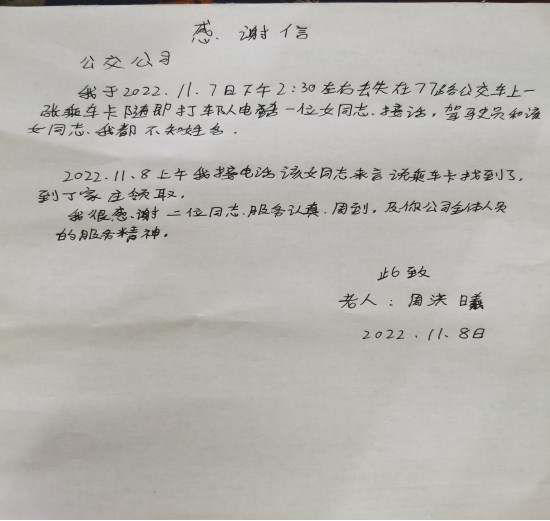 感谢信
公交公司
我于2022.11.7日下午2:30左右丢失在77路公交车上一
张乘车卡随即打车队电话一位女同志.接话,驾驶员和该
女同志.我都不知姓名.
2022.11.8上午我接电话该女同志.来言说乘车卡找到了,
到丁家庄领取.
我很感谢二位同志.服务认真.周到,及你公司全体人员
的服务精神.
此致
老人:周洪曦
2022.11.8日